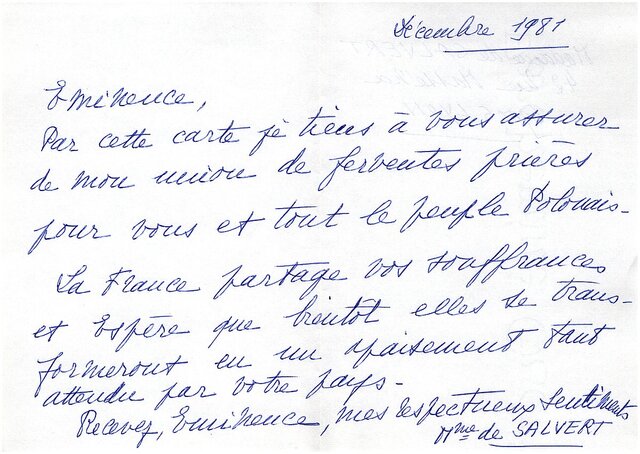 Décembre 1981
Eminence,
Par cette carte je tiens à vous assurer
de mon union de ferventes prières
pour vous et tout le peuple Polonais.
La France partage vos souffrances
et Espère que bientôt elles se trans-
formeront en un apaisement tant
attendu par votre pays.
Recevez, Eminence, mes respectueux sentiments
Mme de SALVERT